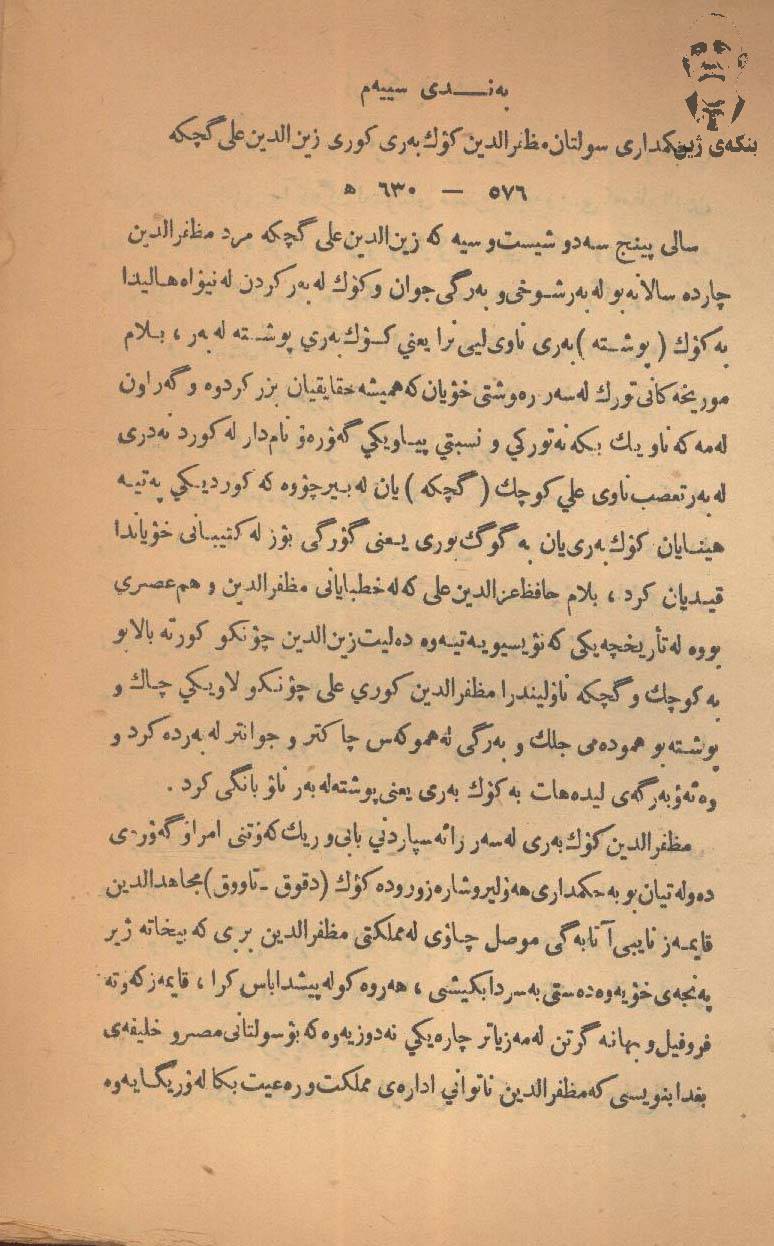 بنکەی ژین
بەنـــدی سییەم
حکمداری سولتان مظفرالدین کۆك بەری کوری زین‌الدین علی گچکە
٥٧٦ — ٦٣٠ ھ
سالی پینج سەدو شیست و سیە کە زین‌الدین علی گچکە مرد مظفرالدین
چاردە سالانە بو لە بەر شوخی و بەرگی جوان وکۆك لە بەر کردن لە نیۆاەهالیدا
بە کۆك ( پوشتە ) بەری ناوی لیی نرا یعني کۆك بەري پوشتە لە بەر ، بلام
موریخەکانی تورك لەسەر رەوشتی خۆیان کە همیشە حقایقیان بزر کردوە و گەراون
لەمە کە ناویك بکە نە تورکي و نسبتي پیاویکي گەورەۆ نام‌دار لە کورد نەدری
لە بەر تعصب ناوی علي کوچك ( گچکە ) یان لە بیرچۆوە کە کوردیکي پەتیە
هینایان کۆك بەری‌یان بە گوگ بوری یعنی گۆرگی بۆز لە کتیبانی خۆیاندا
قیدیان کرد ، بلام حافظ عزالدین علی کە لە خطبایانی مظفرالدین و هم‌عصري
بووە لە تأریخچەیکی کە نۆیسیویەتیەوە دەلیت زین‌الدین چۆنکو کورتە بالا بو
بە کوچك و گچکە ناۆلیندرا مظفرالدین کوري علی چۆنکو لاویکي چاك و
پوشتە بو هموودەمی جلك و بەرگی لەهموکەس چاکتر و جوانتر لە بەردە کرد و
وەئەۆبەرگەی لیدەهات بە کۆك بەری یعنی پوشتەلەبەر ناۆ بانگی کرد .
مظفرالدین کۆك بەری لەسەر رائەسپاردني بابی و ریك کەۆتنی امراۆ گەۆرەی
دەولەتیان بو بە حکمداری هەۆلیروشارەزورودە کۆك ( دقوق - تاووق ) مجاهدالدین
قایمەز نایبی آتابەگی موصل چاۆی لەمملکتی مظفرالدین بری کە بیخاتە ژیر
پەنجەی خۆیەوە دەستی بەسردا بکیشی ، هەروەکو لەپیشدا باس کرا ، قایمەز کەوتە
فروفیل و بهانە گرتن لەمەزیاتر چارەیکي نەدوزیەوە کە بۆ سولتانی مصرو خلیفەی
بغدا بنویسی کە مظفرالدین ناتواني ادارەی مملکت و رەعیت بکا لەۆریگایەوە